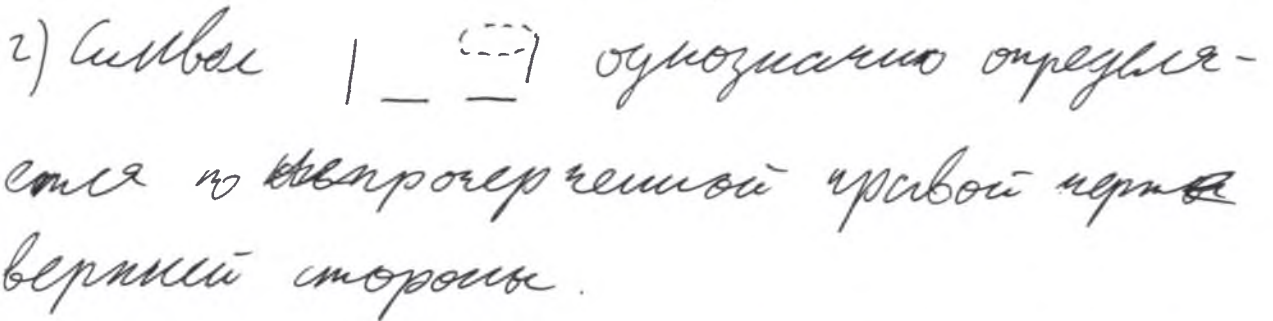 2) Символ | _ _| однозначно определя-
ется по непрочерченной правой черте
верхней стороны.